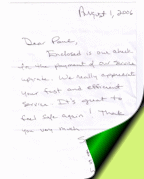 August 1, 2006
Dear Paul,
Enclosed is our check
for the payment of our service
upgrade. We really appreciate
your fast and efficient
service. It's great to
feel safe again! Thank
you very much.